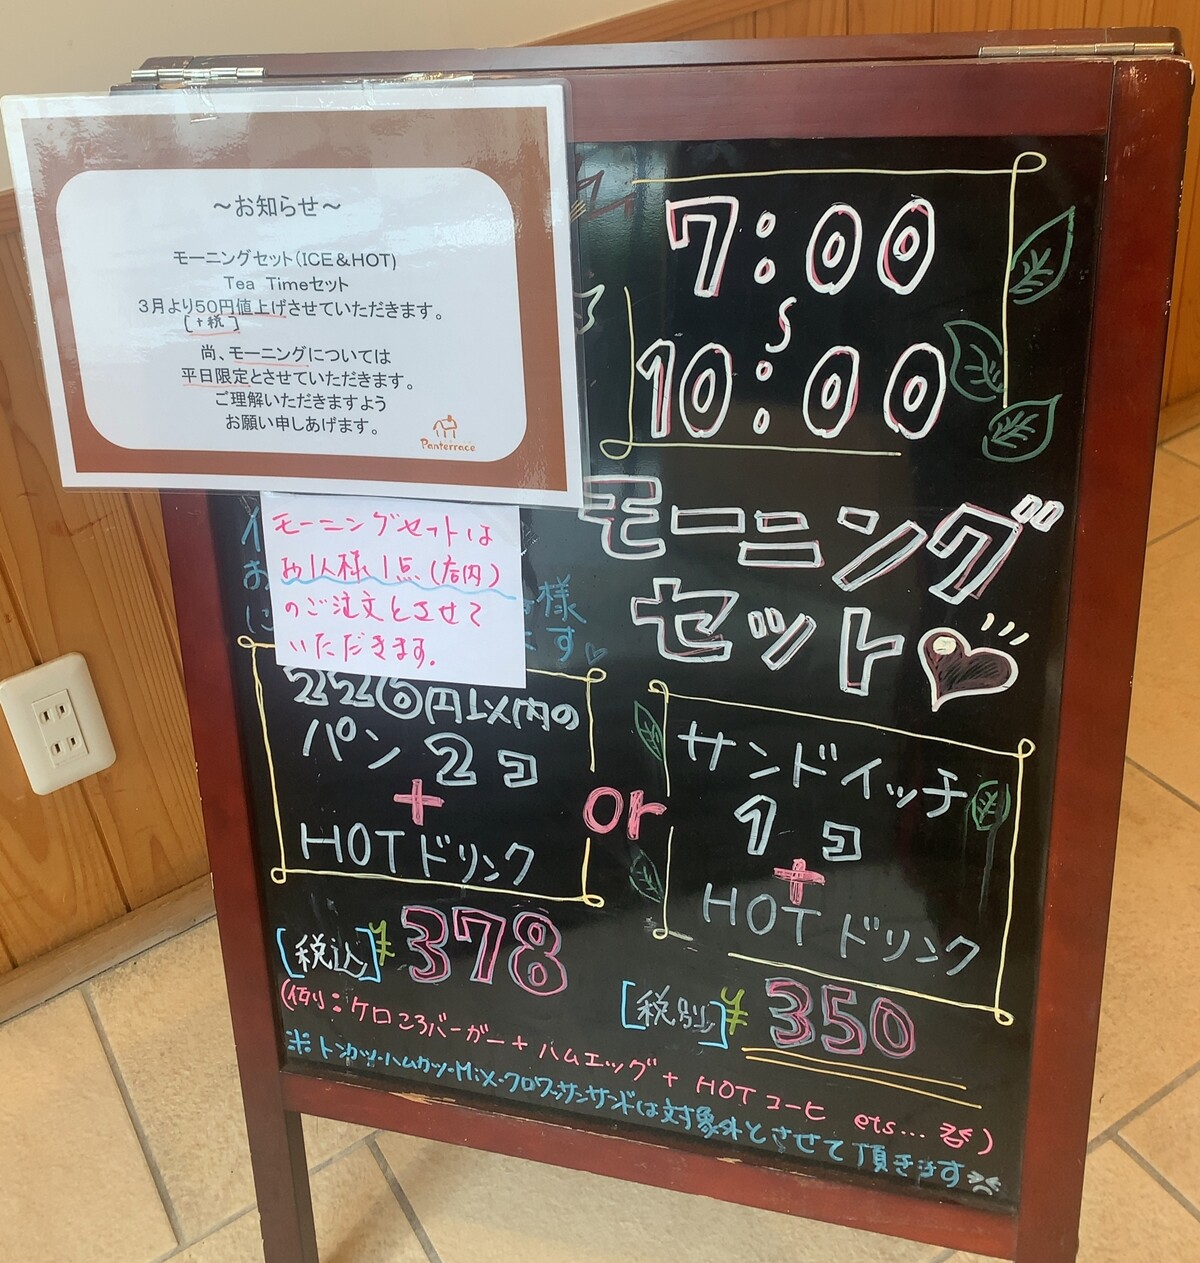 ～お知らせ～
モーニングセット(ICE&HOT)
Tea Timeセット
3月より50円値上げさせていただきます。
[+税]
尚、モーニングについては
平日限定とさせていただきます。
ご理解いただきますよう
お願い申しあげます。
Panterrace
7:00
～
10:00
モーニング
セット
モーニングセットは
お1人様1点(店内)
のご注文とさせて
いただきます。
様
ます
220円以内の
パン2コ
+
HOTドリンク
or
サンドイッチ
1コ
+
HOTドリンク
[税込]¥378
[税別]¥350
(例:ケロころバーガー+ハムエッグ+HOTコーヒ ets...など)
※トンカツ・ハムカツ・Mix・クロワッサンサンドは対象外とさせて頂きます